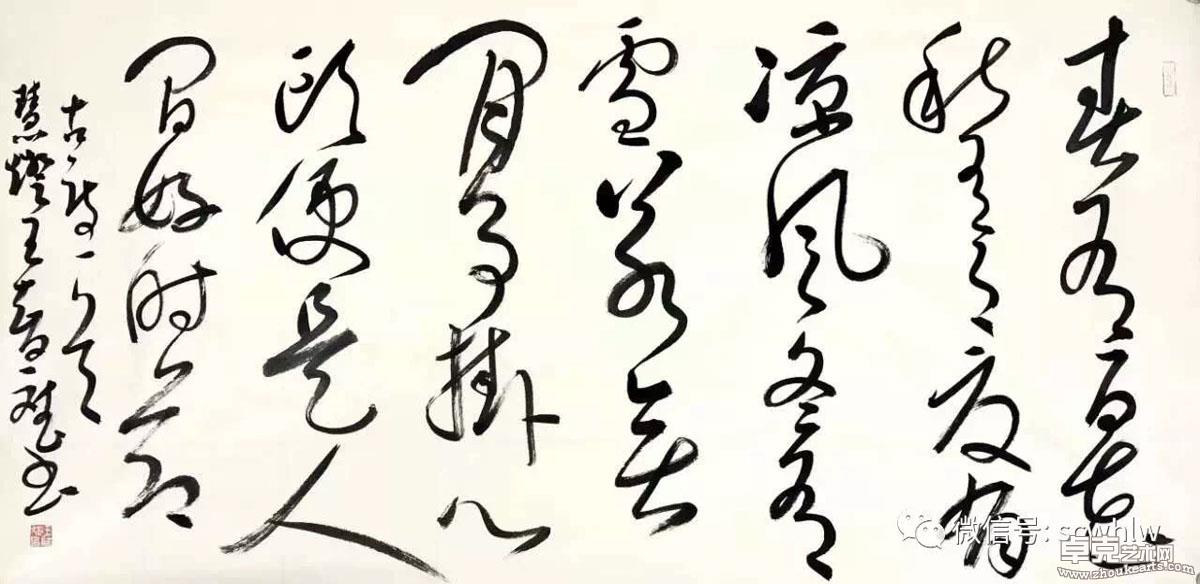 春有百花
秋有月夏有
凉风冬有
雪若无
閒事掛心
頭便是人
間好时节
古诗一首
慧燈王书
微信号: scwhlw
卓克艺术网
www.zhoukearts.com